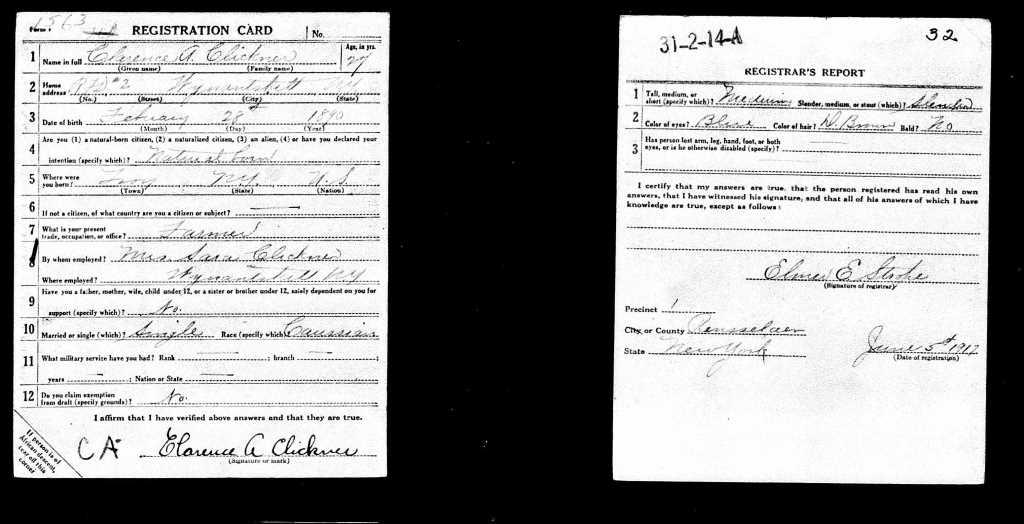 1563
Form 1 REGISTRATION CARD No.
1 Name in full Clarence A. Clickner Age, in yrs. 27
(Given name) (Family name)
2 Home address RFD #2 Wynantskill NY
(No.) (Street) (City) (State)
3 Date of birth February 28th 1890
(Month) (Day) (Year)
4 Are you (1) a natural-born citizen, (2) a naturalized citizen, (3) an alien, (4) or have you declared your
intention (specify which)? Natural born
5 Where were you born? Troy NY. U.S
(Town) (State) (Nation)
6 If not a citizen, of what country are you a citizen or subject?
7 What is your present trade, occupation, or office? Farmer
8 By whom employed? Mrs. Sara Clickner
Where employed? Wynantskill NY
9 Have you a father, mother, wife, child under 12, or a sister or brother under 12, solely dependent on you for
support (specify which)? No.
10 Married or single (which)? Single Race (specify which)? Caucasian
11 What military service have you had? Rank ; branch ;
years ; Nation or State
12 Do you claim exemption from draft (specify grounds)? No.
I affirm that I have verified above answers and that they are true.
CA
Clarence A Clickner
(Signature or mark)
If person is of
African descent,
tear off this
corner
31-2-14-A 32
REGISTRAR'S REPORT
1 Tall, medium, or short (specify which)? Medium Slender, medium, or stout (which)? Slender
2 Color of eyes? Color of hair? D. Brown Bald? No
3 Has person lost arm, leg, hand, foot, or both
eyes, or is he otherwise disabled (specify)?
I certify that my answers are true, that the person registered has read his own
answers, that I have witnessed his signature, and that all of his answers of which I have
knowledge are true, except as follows:
Elmer E
(Signature of registrar)
Precinct 1
City or County Rensselaer
State New York June 5th 1917
(Date of registration)